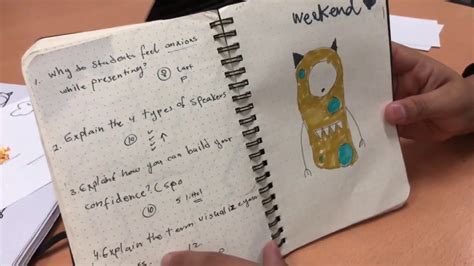 1. Why do students feel anxious
while presenting?
8
Last
P
2. Explain the 4 types of speakers
10
3. Explain how you can build your
confidence? (spo
10
5
4. Explain the term visualize
12
weekend